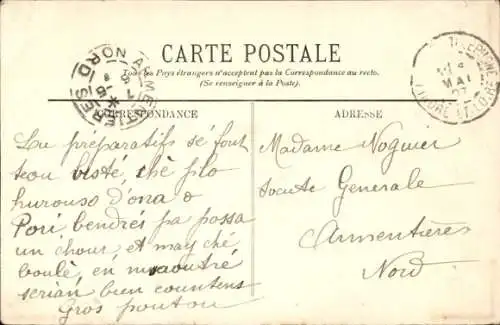 CARTE POSTALE
Tous les Pays étrangers n'acceptent pas la Correspondance au recto.
(Se renseigner à la Poste).
CORRESPONDANCE
ADRESSE
Lou préparatifs sé font
teou bisté, ché plo
hurouso d'ona o
Pori bendrés pa possa
un chour et may ché
boulé, en
serian bien countens
Gros poutou
Madame Noguier
Générale
Armentières
Nord
MAI